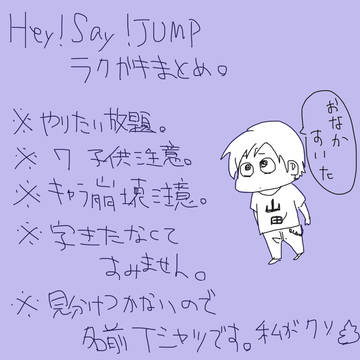 Hey!Say!JUMP
ラクガキまとめ。
※やりたい放題。
※7 子供注意。
※キャラ崩壊注意。
※字きたなくて
すみません。
※見分けつかないので
名前Tシャツです。私がクソ
おなか
すいた
山田